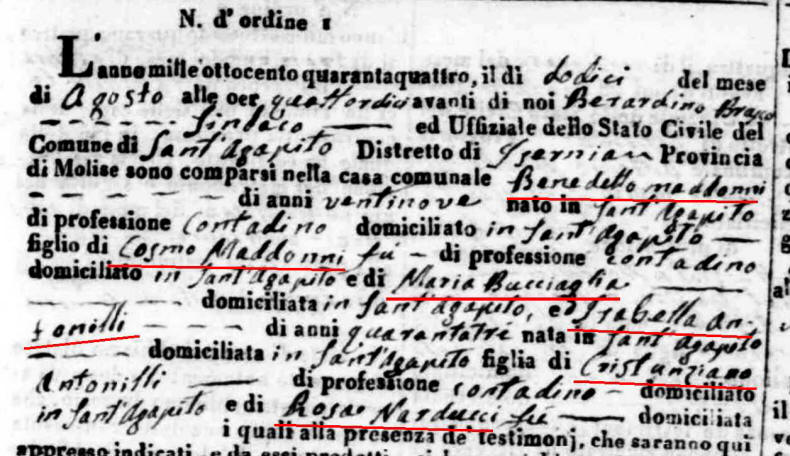 N. d'ordine 1
L'anno mille ottocento quarantaquattro, il di dodici del mese
di Agosto alle oer quattordici avanti di noi Berardino
Sindaco ed Uffiziale dello Stato Civile del
Comune di Sant'Agapito Distretto di Provincia
di Molise sono comparsi nella casa comunale Benedetto Maddonni
di anni ventinove nato in Sant'Agapito
di professione Contadino domiciliato in Sant'Agapito
figlio di Cosmo Maddonni fu di professione contadino
domiciliato in Sant'Agapito e di Maria Bucciaglia
domiciliata in Sant'Agapito, ed Isabella An
tonilli di anni quarantatré nata in Sant'Agapito
domiciliata in Sant'Agapito figlia di Cristanziano
Antonilli di professione contadino domiciliato
in Sant'Agapito e di Rosa Narducci fu domiciliata
i quali alla presenza de' testimonj, che saranno qui
appresso indicati, e da essi prodotti